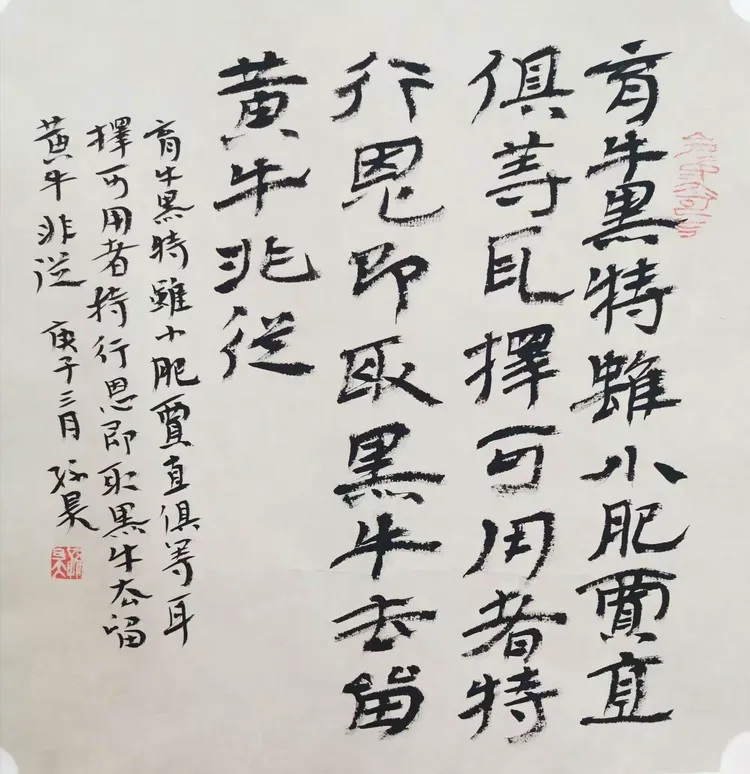 育牛黑特雖小肥賈直
俱等耳擇可用者特
行恩即取黑牛去留
黃牛非從
育牛黑特雖小肥賈直俱等耳
擇可用者持行恩即取黑牛去留
黃牛非從 庚子三月 孫昊